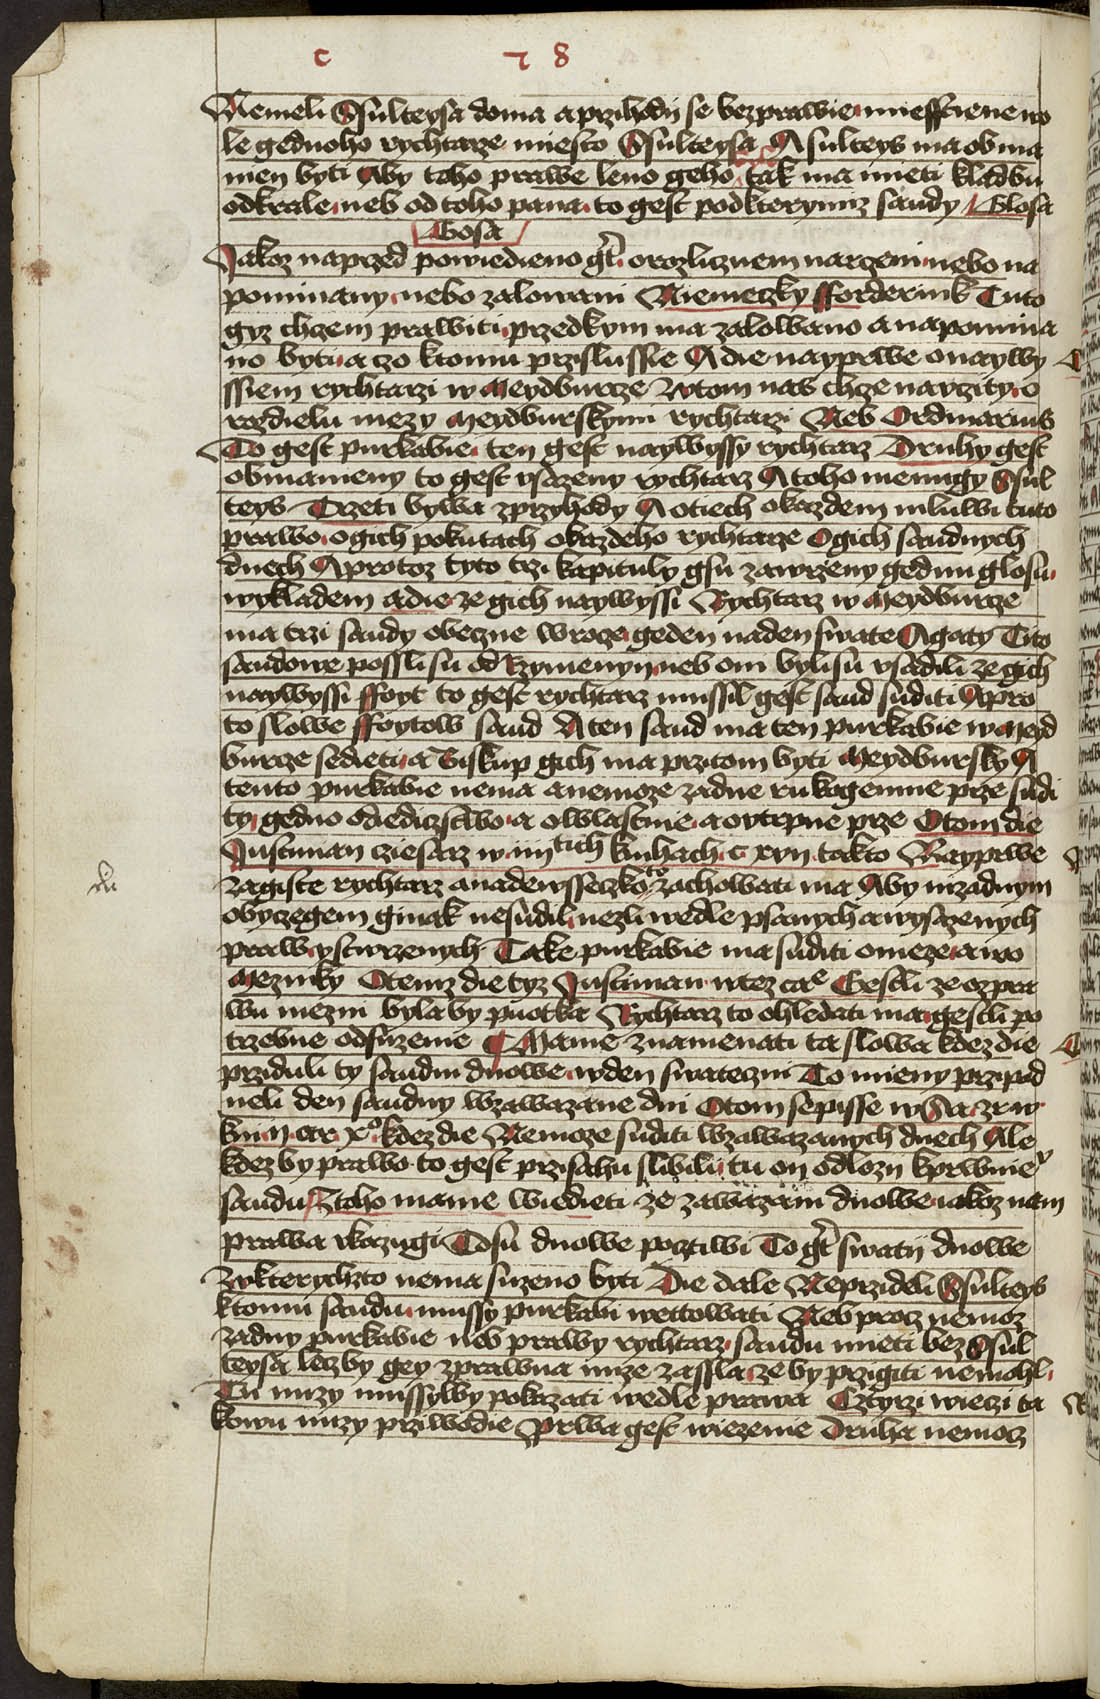 c 78
Nemeli Ssulteysa doma a przihodij se bezprawie miesstiene wo
le gednoho rychtarze miesto Ssulteysa A sulteys ma obna
men byti Aby toho prawe leno geho tak ma mieti kladbu
odkrale neb od toho pana to gest podkterymz saudy Glosa
Glosa
Jakoz naprzed powiedieno gt orozlicznem narzeni nebo na
pominany nebo zalowani Niemeczky fforderink Tuto
gyz chzem prawiti przedkym ma zalowano a napomina
no byti a czo ktomu przislussie A die nayprwe o naywy
ssiem rychtarzi w Meydburcze Wtom nas chze nauczity o
rozdielu mezy Meydburskymi rychtarzi Neb Ordinarius
To gest purkabie ten gest naywyssy rychtarz Druhy gest
obnameny to gest vsazeny rychtarz A toho menugy Ssul
teys Trzeti bywa zprzyhody A otiech okazdem mluwi tuto
prawo o gich pokutach okazdeho rychtarze O gich saudnych
dnech A protoz tyto trzi kapituly gsu zawrzeny gednu glosu
wykladem a die ze gich naywyssi Rychtarz w Meydburcze
ma trzi saudy obeczne wrocze geden naden swate Agaty Tito
saudowe possli su od Rzymenyn neb oni byli su vsadili ze gich
naywyssi ffoyt to gest rychtarz mussil gest saud suditi A pro
to slowe ffoytow saud A ten saud ma ten purkabie w Meyd
burcze sedieti a Biskup gich ma przitom byti Meydbursky A
tento purkabie nema a nemoze zadne rukogemne prze sudi
ty gedno odiediczstwo a owlastnie a oytrpne prze Otom die
Justinian cziesarz w iiij tich knihach c xvij takto Nayprwe
zagiste rychtarz anadewsseczko to zachowati ma Aby nizadnym
obyczegem ginak nesudil nezli wedle psanych a wysazenych
praw vstwrzenych Take purkabie ma suditi omeze a wo
Mezniky Otemz die tyz Justinian wtez cae Gestli ze ozpra
wu mezni byla by puotka Rychtarz to ohledati ma gestli po
trzebne odsuzenie Mame znamenati ta slowa kdez die
prziduli ty saudni dnowe wden swateczni To mieny przipad
neli den saudny wzawazane dni Otom se pisse w Sa zr w
knij n ar xo kdez die Nemoze suditi wzawazanych dnech Ale
kdez by prawo to gest przisahu slibili tu on odlozy kprwnie
saudu Ztoho mame wiedieti ze zawazani dnowe iakoz nam
prawa vkazugi To su dnowe pocztiwi To gt swatij dnowe
Wkterychzto nema suzeno byti Die dale Neprzideli Ssulteys
ktomu saudu mussy purkabi wettowati Neb procz nemoz
zadny purkabie neb prawy rychtarz saudu mieti bez Ssul
teysa lecz by gey zprawna nuze zassla ze by przigiti nemohl
Tu nuzy mussylby pokazati wedle prawa Cztyrzi wieczi ta
kowu nuzy przi wodie Prwa gest wiezenie Druha nemocz